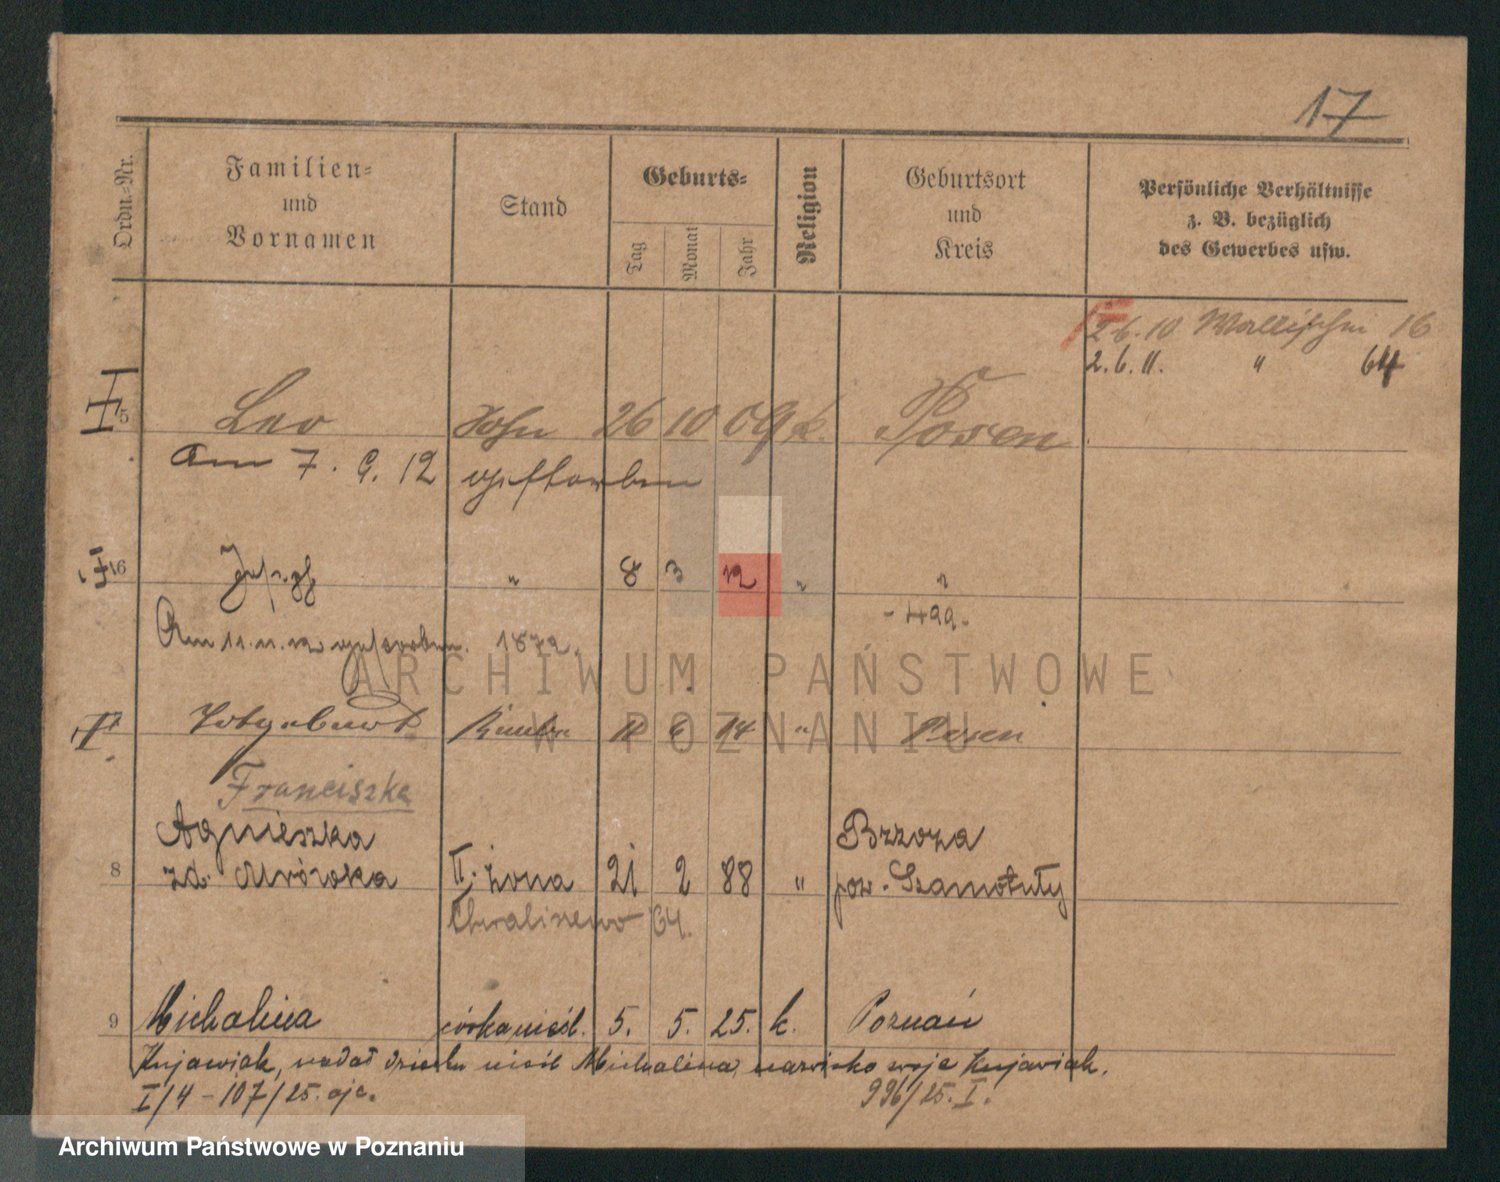 17
Ordn.-Nr.
Familien-
und
Vornamen
Stand
Geburts-
Tag
Monat
Jahr
Religion
Geburtsort
und
Kreis
Persönliche Verhältnisse
z. B. bezüglich
des Gewerbes usw.
2.6.10 Wallischei 16
2.6.11. " 64
5 Leo Sohn 26 10 09 k. Posen
Am 7. 9. 12 gestorben
6 Josef " 8 3 12 " "
Am 11.11.12 gestorben. 1872. - 499.
6 14 " Posen
Franciszka
Agnieszka Brzoza
8 zd. Mrózoka II. żona 21 2 88 " pow. Szamotuły
64.
9 Michalina córka nieśl. 5. 5. 25. k. Poznań
Kujawiak, nadał dziecku nieśl Michalina nazwisko swoje Kujawiak.
I/4 - 107/25. 996/25. I.
ARCHIWUM PAŃSTWOWE
W POZNANIU
Archiwum Państwowe w Poznaniu